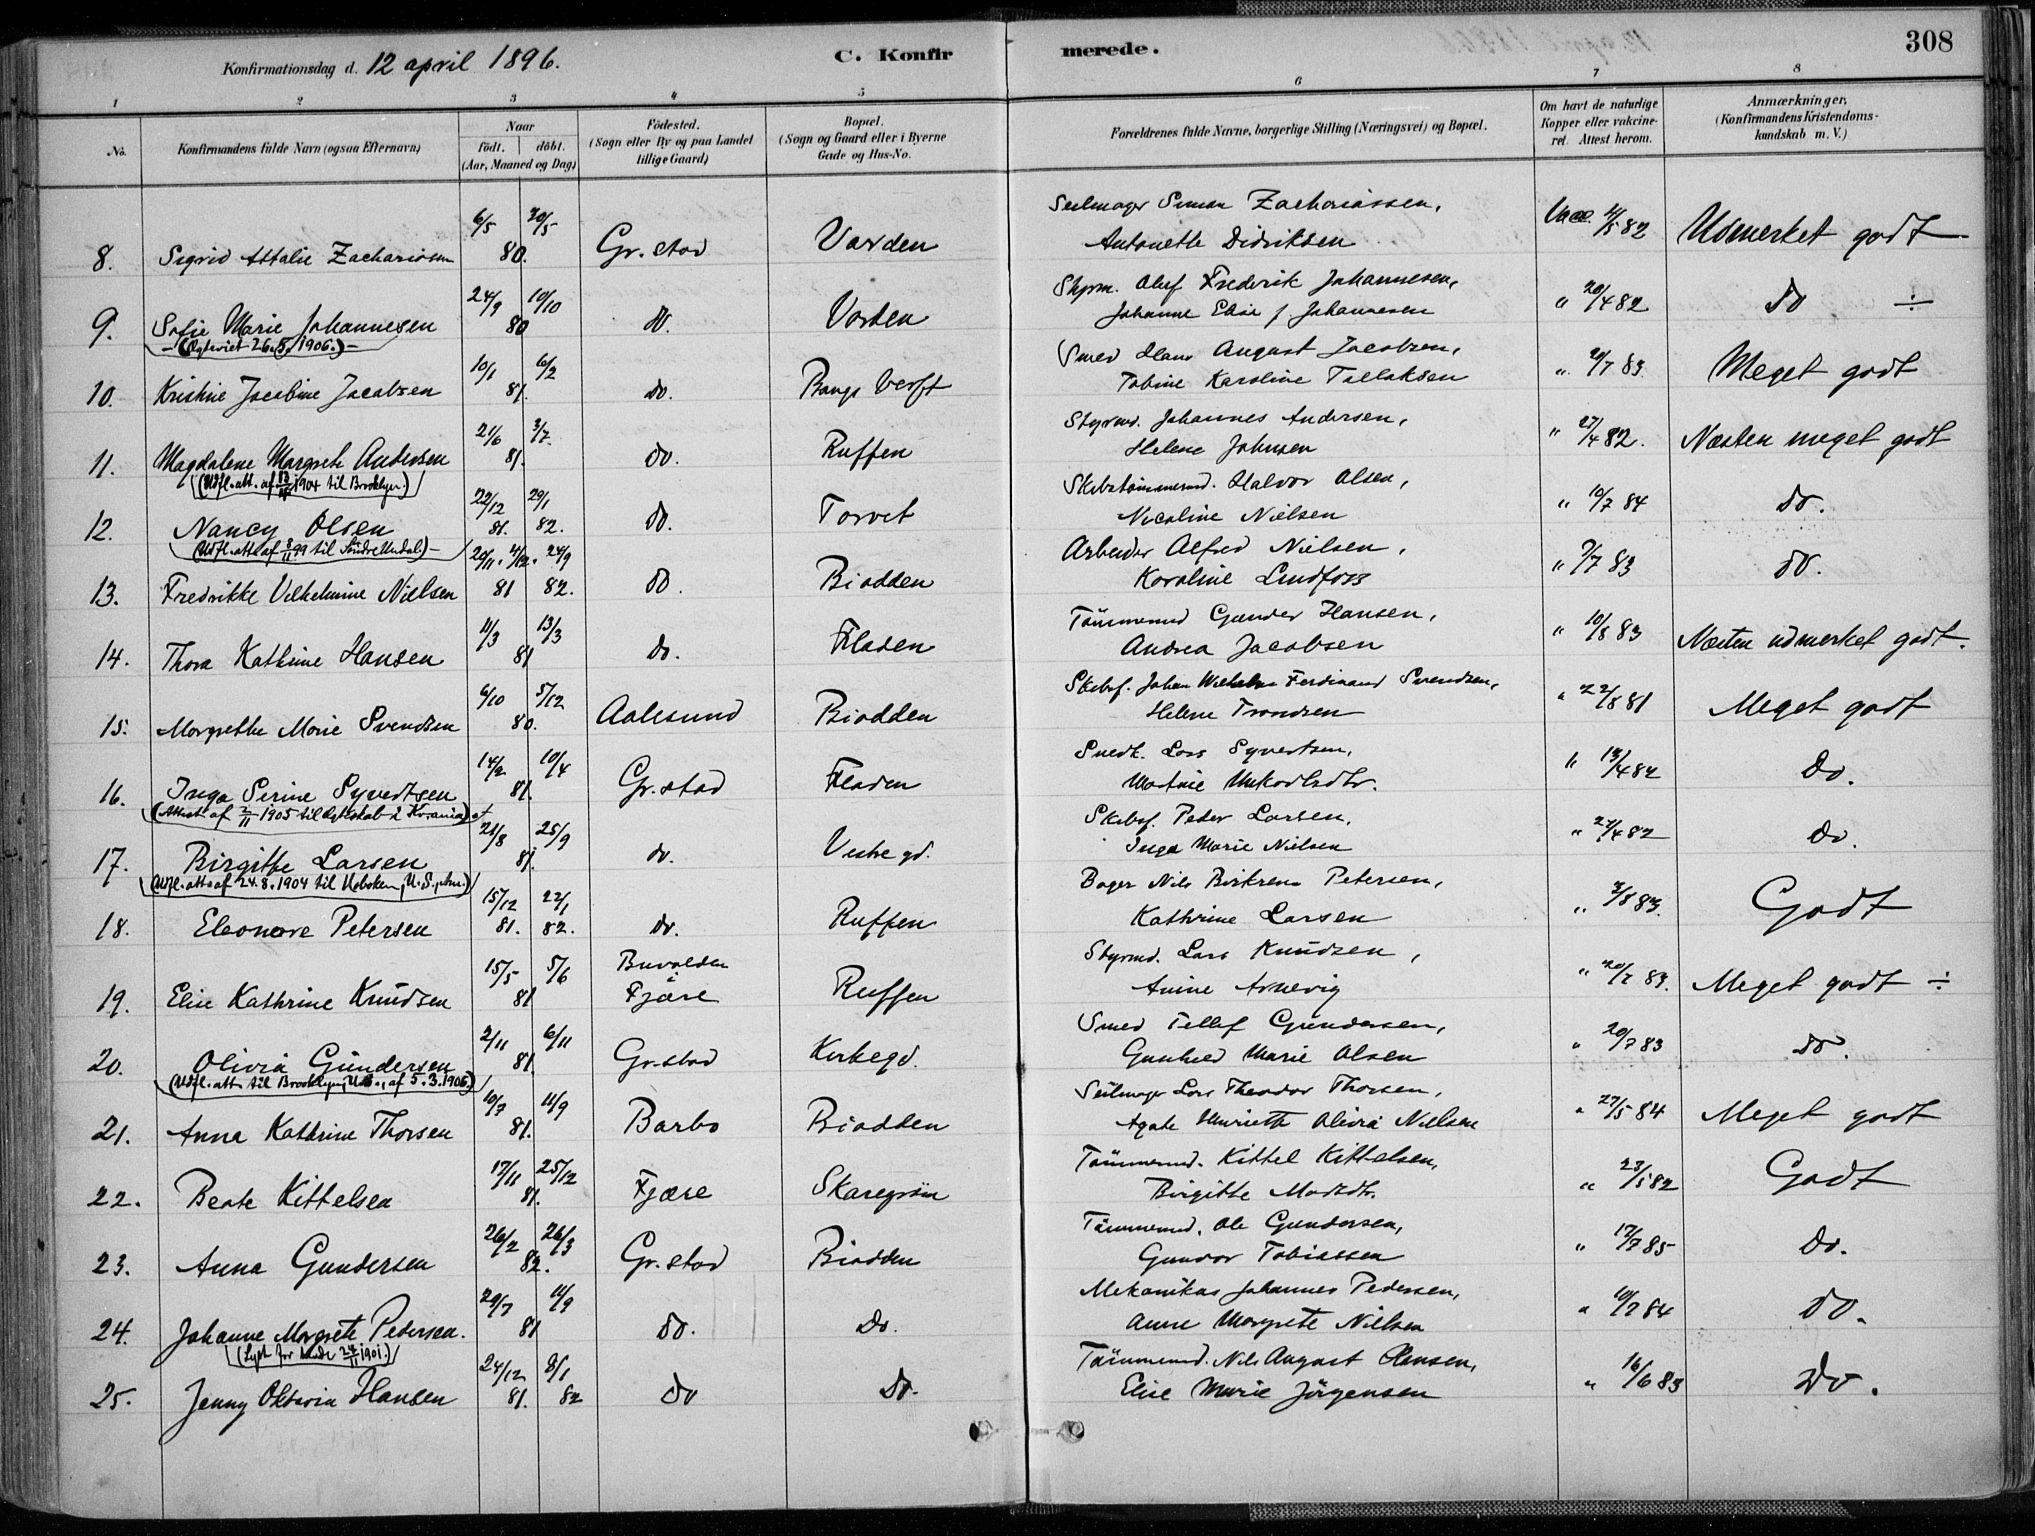 308
Konfirmationsdag d. 12 april 1896.
C. Konfirmerede.
1 2 3 4 5 6 7 8
No.
Konfirmandens fulde Navn (ogsaa Efternavn)
Naar
födt. döbt.
(Aar, Maaned og Dag)
Födested.
(Sogn eller By og paa Landet
tillige Gaard)
Bopæl.
(Sogn og Gaard eller i Byerne
Gade og Hus-No.
Forældrenes fulde Navne, borgerlige Stilling (Næringsvei) og Bopæl.
Om havt de naturlige
Kopper eller vakcine-
ret. Attest herom.
Anmærkninger,
(Konfirmandens Kristendoms-
kundskab m. V.)
8. Sigrid Attalie Zachariasen 6/5 30/5 80. Gr.stad Varden
Seilmager Simon Zachariassen,
Antonette Didriksen
Vacc. 11/5 82 Udmerket godt
9. Sofie Marie Johannesen 24/9 10/10 80 do. Varden
(Ægteviet 26.5.1906.)
Skpm. Oluf Frederik Johannesen,
Johanne Elise f. Johannesen
" 20/4 82 do ÷
10. Kristine Jacobine Jacobsen 10/1 6/2 81. do. Bangs Verft
Smed Hans August Jacobsen,
Tobine Karoline Tallaksen
" 20/7 83 Meget godt
11. Magdalene Margrete Andersen 21/6 3/7. 81. do. Ruffen
(Udfl.att. af 1904 til Brooklyn.)
Styrmd. Johannes Andersen,
Helene Johnsen
" 27/4 82. Næsten meget godt
12. Nancy Olsen 22/12 81. 29/1 82. do. Torvet
(Udfl.att af 8/11 99 til Söndre Undal)
Skibstömmermd. Halvor Olsen,
Nicoline Nielsen
" 10/7 84 do.
13. Fredrikke Vilhelmine Nielsen 81 24/9 82. do. Biodden
Arbeider Alfred Nielsen,
Karoline Lindfoss
" 7/7 83 do.
14. Thora Kathrine Hansen 11/3 13/3 81 do. Fladen
Tömmermd Gunder Hansen,
Andrea Jacobsen
" 10/8 83 Næsten udmerket godt.
15. Margrethe Marie Svendsen 6/10 5/12 80. Aalesund Biodden
Skibsf. Johan Wilhelm Ferdinand Svendsen,
Helene Trondsen
" 22/8 81 Meget godt
16. Inga Serine Syvertsen 14/2 10/4 81. Gr.stad Fladen
(Attest af 2/11 1905 til Ægteskab i Kr.ania)
Snedk. Lars Syvertsen,
" 13/4 82 do.
17. Birgitte Larsen 21/8 25/9 81. do. Vestregd.
(Udfl.att af 24.8.1904 til Hoboken, U.S., Am.)
Skibsf. Peder Larsen,
Inga Marie Nielsen
" 27/4 82 do.
18. Eleonore Petersen 15/12 81. 22/1 82. do. Ruffen
Bager Nils Petersen,
Kathrine Larsen
" 3/8 83. Godt
19. Elise Kathrine Knudsen 15/5 5/6 81 Buvolden
i
Fjære Ruffen
Styrmd. Lars Knudsen,
Anine Arnevig
" 20/7 83. Meget godt ÷
20. Olivia Gundersen 2/11 6/11 81. Gr.stad Kirkegd.
(Udfl.att. til Brooklyn, U.S., af 5.3.1906)
Smed Tellef Gundersen,
Gunhild Marie Olsen
" 20/7 83 do.
21. Anna Kathrine Thorsen 10/7 11/9 81. Barbo Biodden
Seilmager Lars Theodor Thorsen,
Agate Henriette Olivia Nielsen
" 27/5 84 Meget godt
22. Beate Kittelsen 17/11 25/12 81. Fjære Skaregröm
Tömmermd. Kittel Kittelsen,
Birgitte Madsdtr.
" 23/5 82 Godt
23. Anna Gundersen 26/2 26/3 82. Gr.stad Biodden
Tömmermd. Ole Gundersen,
Gunvor Tobiassen
" 17/7 85 do.
24. Johanne Margrete Pedersen. 29/7 11/9 81 do. do.
(Lyst for hende 24/11 1901.)
Mekanikus Johannes Pedersen,
Anne Margrete Nielsen
" 10/7 84 do.
25. Jenny Oktavia Hansen 24/12 81. 8/1 82 do do.
Tömmermd. Nils August Hansen,
Elise Marie Jörgensen
" 16/6 83 do.